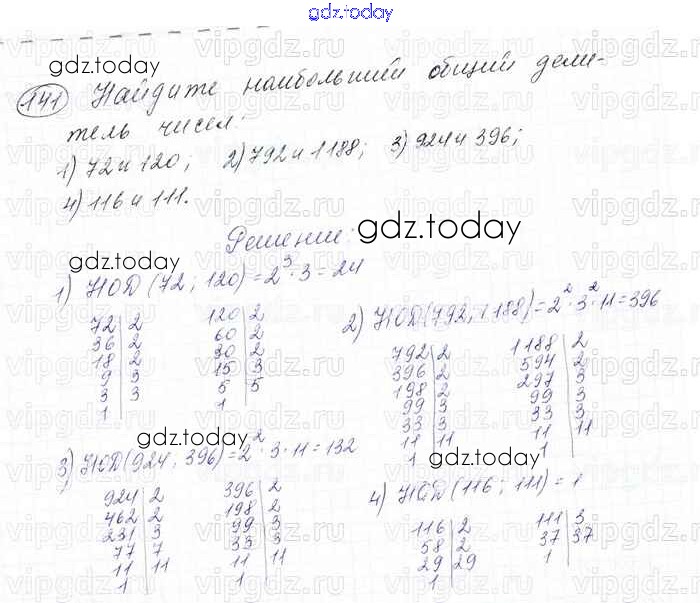 gdz.today
gdz.today
141 Найдите наибольший общий дели-
тель чисел:
1) 72 и 120; 2) 792 и 1188; 3) 924 и 396;
4) 116 и 111.
gdz.today
Решение:
gdz.today
1) НОД (72; 120) = 2³·3 = 24
72 | 2
36 | 2
18 | 2
9 | 3
3 | 3
1
120 | 2
60 | 2
30 | 2
15 | 3
5 | 5
1
2) НОД (792; 1188) = 2²·3²·11 = 396
792 | 2
396 | 2
198 | 2
99 | 3
33 | 3
11 | 11
1
1188 | 2
594 | 2
297 | 3
99 | 3
33 | 3
11 | 11
1
gdz.today
3) НОД (924; 396) = 2²·3·11 = 132
924 | 2
462 | 2
231 | 3
77 | 7
11 | 11
1
396 | 2
198 | 2
99 | 3
33 | 3
11 | 11
1
gdz.today
4) НОД (116; 111) = 1
116 | 2
58 | 2
29 | 29
1
111 | 3
37 | 37
1